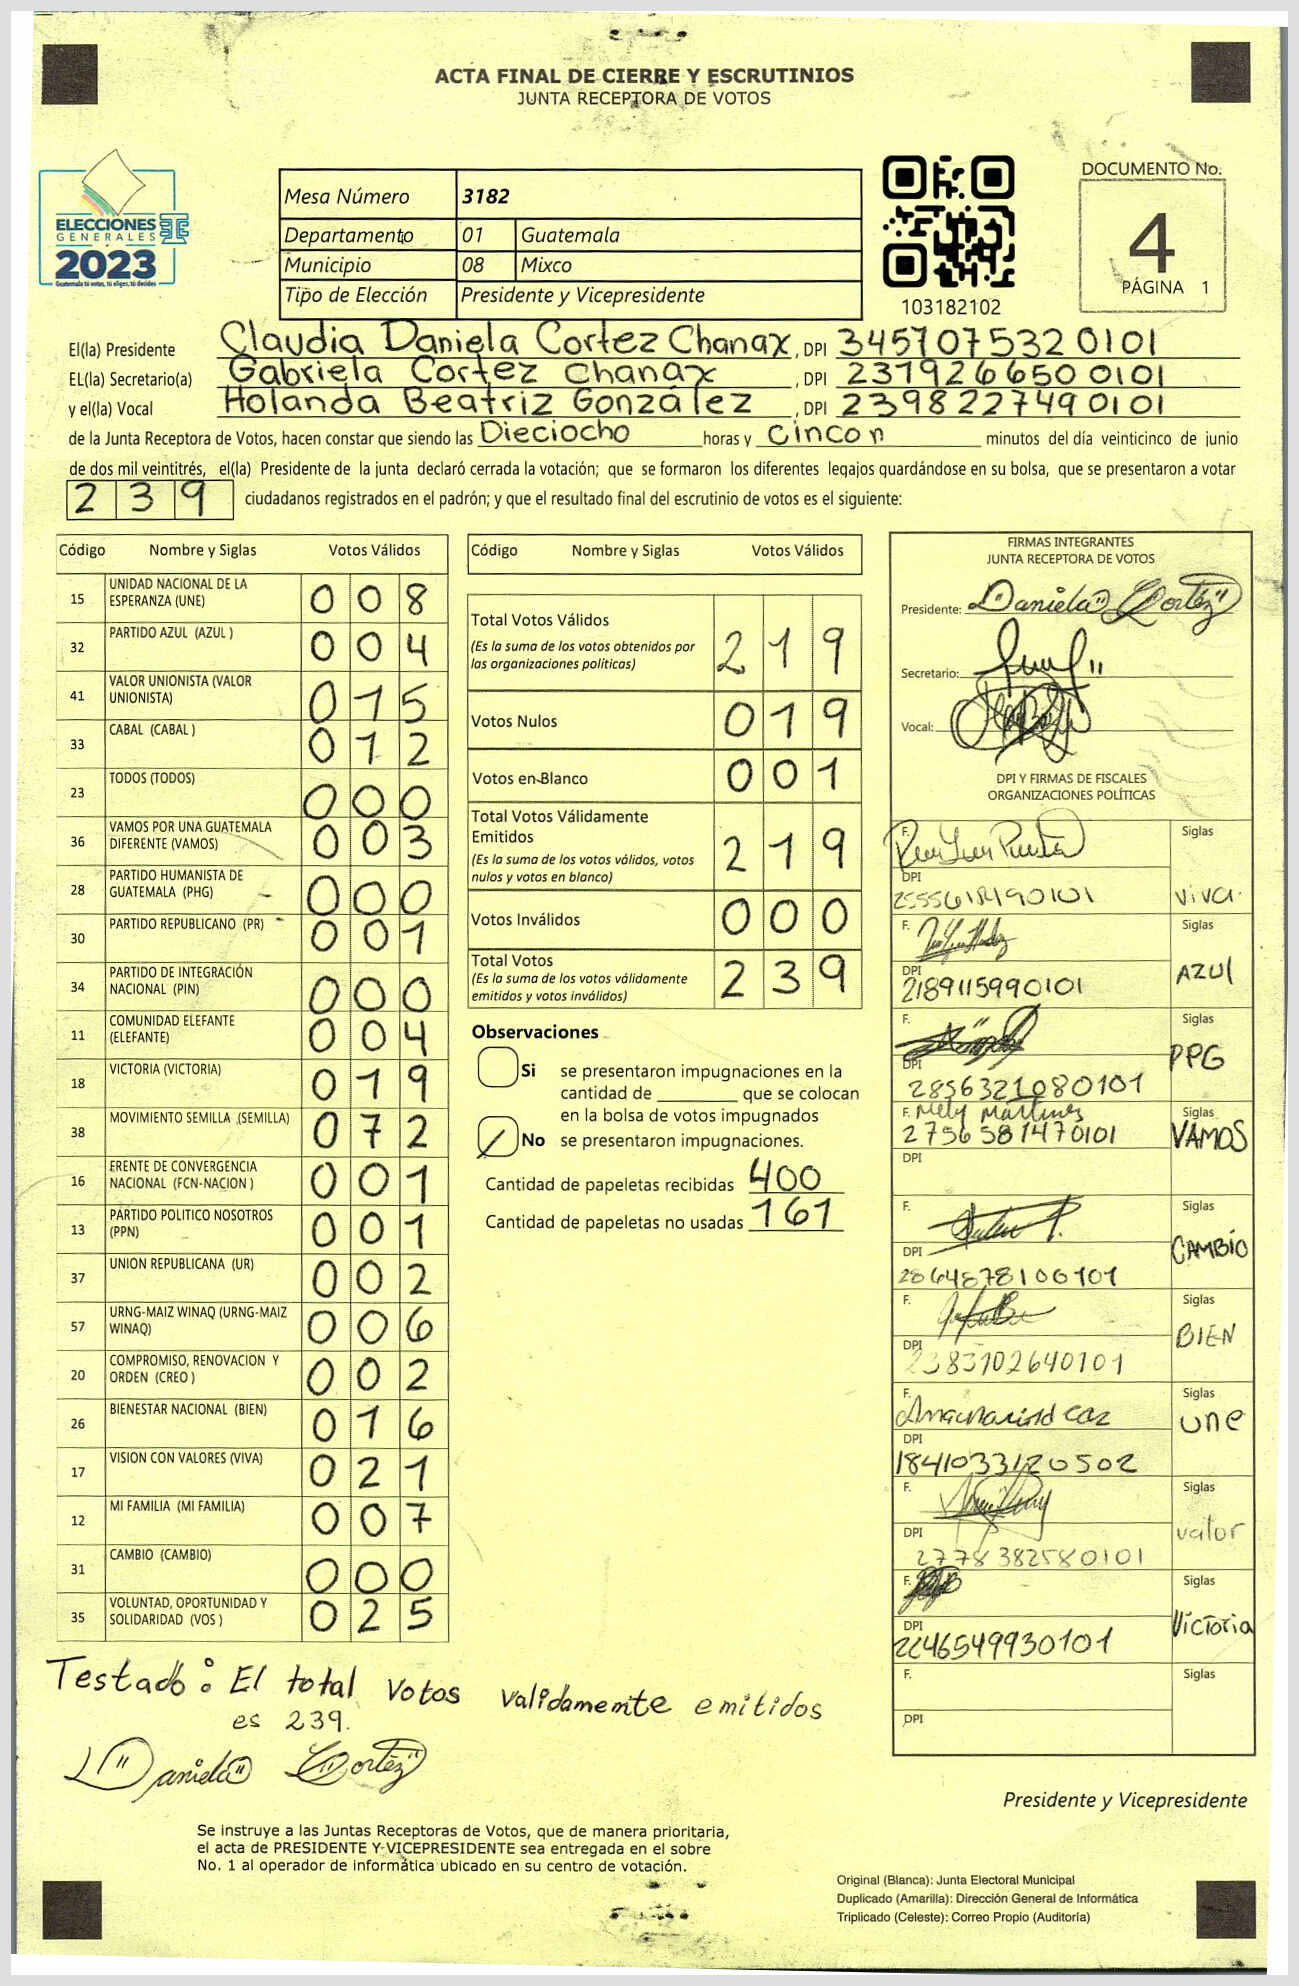 ACTA FINAL DE CIERRE Y ESCRUTINIOS
JUNTA RECEPTORA DE VOTOS
ELECCIONES
GENERALES
2023
Guatemala tú votas, tú eliges, tú decides
Mesa Número 3182
Departamento 01 Guatemala
Municipio 08 Mixco
Tipo de Elección Presidente y Vicepresidente
103182102
DOCUMENTO No.
4
PÁGINA 1
El(la) Presidente Claudia Daniela Cortez Chanax, DPI 3451075320101
EL(la) Secretario(a) Gabriela Cortez Chanax, DPI 2379266500101
y el(la) Vocal Holanda Beatriz González, DPI 2398227490101
de la Junta Receptora de Votos, hacen constar que siendo las Dieciocho horas y Cinco minutos del día veinticinco de junio
de dos mil veintitrés, el(la) Presidente de la junta declaró cerrada la votación; que se formaron los diferentes legajos guardándose en su bolsa, que se presentaron a votar
239 ciudadanos registrados en el padrón; y que el resultado final del escrutinio de votos es el siguiente:
Código Nombre y Siglas Votos Válidos
15 UNIDAD NACIONAL DE LA ESPERANZA (UNE) 008
32 PARTIDO AZUL (AZUL ) 004
41 VALOR UNIONISTA (VALOR UNIONISTA) 015
33 CABAL (CABAL ) 012
23 TODOS (TODOS) 000
36 VAMOS POR UNA GUATEMALA DIFERENTE (VAMOS) 003
28 PARTIDO HUMANISTA DE GUATEMALA (PHG) 000
30 PARTIDO REPUBLICANO (PR) 001
34 PARTIDO DE INTEGRACIÓN NACIONAL (PIN) 000
11 COMUNIDAD ELEFANTE (ELEFANTE) 004
18 VICTORIA (VICTORIA) 019
38 MOVIMIENTO SEMILLA (SEMILLA) 072
16 FRENTE DE CONVERGENCIA NACIONAL (FCN-NACION ) 001
13 PARTIDO POLITICO NOSOTROS (PPN) 001
37 UNION REPUBLICANA (UR) 002
57 URNG-MAIZ WINAQ (URNG-MAIZ WINAQ) 006
20 COMPROMISO, RENOVACION Y ORDEN (CREO ) 002
26 BIENESTAR NACIONAL (BIEN) 016
17 VISION CON VALORES (VIVA) 021
12 MI FAMILIA (MI FAMILIA) 007
31 CAMBIO (CAMBIO) 000
35 VOLUNTAD, OPORTUNIDAD Y SOLIDARIDAD (VOS ) 025
Código Nombre y Siglas Votos Válidos
Total Votos Válidos 219
(Es la suma de los votos obtenidos por
las organizaciones políticas)
Votos Nulos 019
Votos en Blanco 001
Total Votos Válidamente
Emitidos 219
(Es la suma de los votos válidos, votos
nulos y votos en blanco)
Votos Inválidos 000
Total Votos 239
(Es la suma de los votos válidamente
emitidos y votos inválidos)
Observaciones
Si se presentaron impugnaciones en la
cantidad de ________ que se colocan
en la bolsa de votos impugnados
No se presentaron impugnaciones.
Cantidad de papeletas recibidas 400
Cantidad de papeletas no usadas 161
FIRMAS INTEGRANTES
JUNTA RECEPTORA DE VOTOS
Presidente: Daniela Cortéz
Secretario:
Vocal:
DPI Y FIRMAS DE FISCALES
ORGANIZACIONES POLÍTICAS
F. Siglas
DPI viva.
F. Siglas
DPI 2189115990101 AZUl
F. Siglas
DPI 2856321080101 PPG
F. Mely Martínez Siglas
2756581470101 VAMOS
DPI
F. Siglas
DPI 2864878100101 CAMBIO
F. Siglas
DPI 2383102640101 BIEN
F. Siglas
DPI 1841033120502 une
F. Siglas
DPI 2778382580101 valor
F. Siglas
DPI 2246549930101 Victoria
F. Siglas
DPI
Testado: El total votos validamente emitidos
es 239.
Daniela Cortéz
Presidente y Vicepresidente
Se instruye a las Juntas Receptoras de Votos, que de manera prioritaria,
el acta de PRESIDENTE Y VICEPRESIDENTE sea entregada en el sobre
No. 1 al operador de informática ubicado en su centro de votación.
Original (Blanca): Junta Electoral Municipal
Duplicado (Amarilla): Dirección General de Informática
Triplicado (Celeste): Correo Propio (Auditoría)